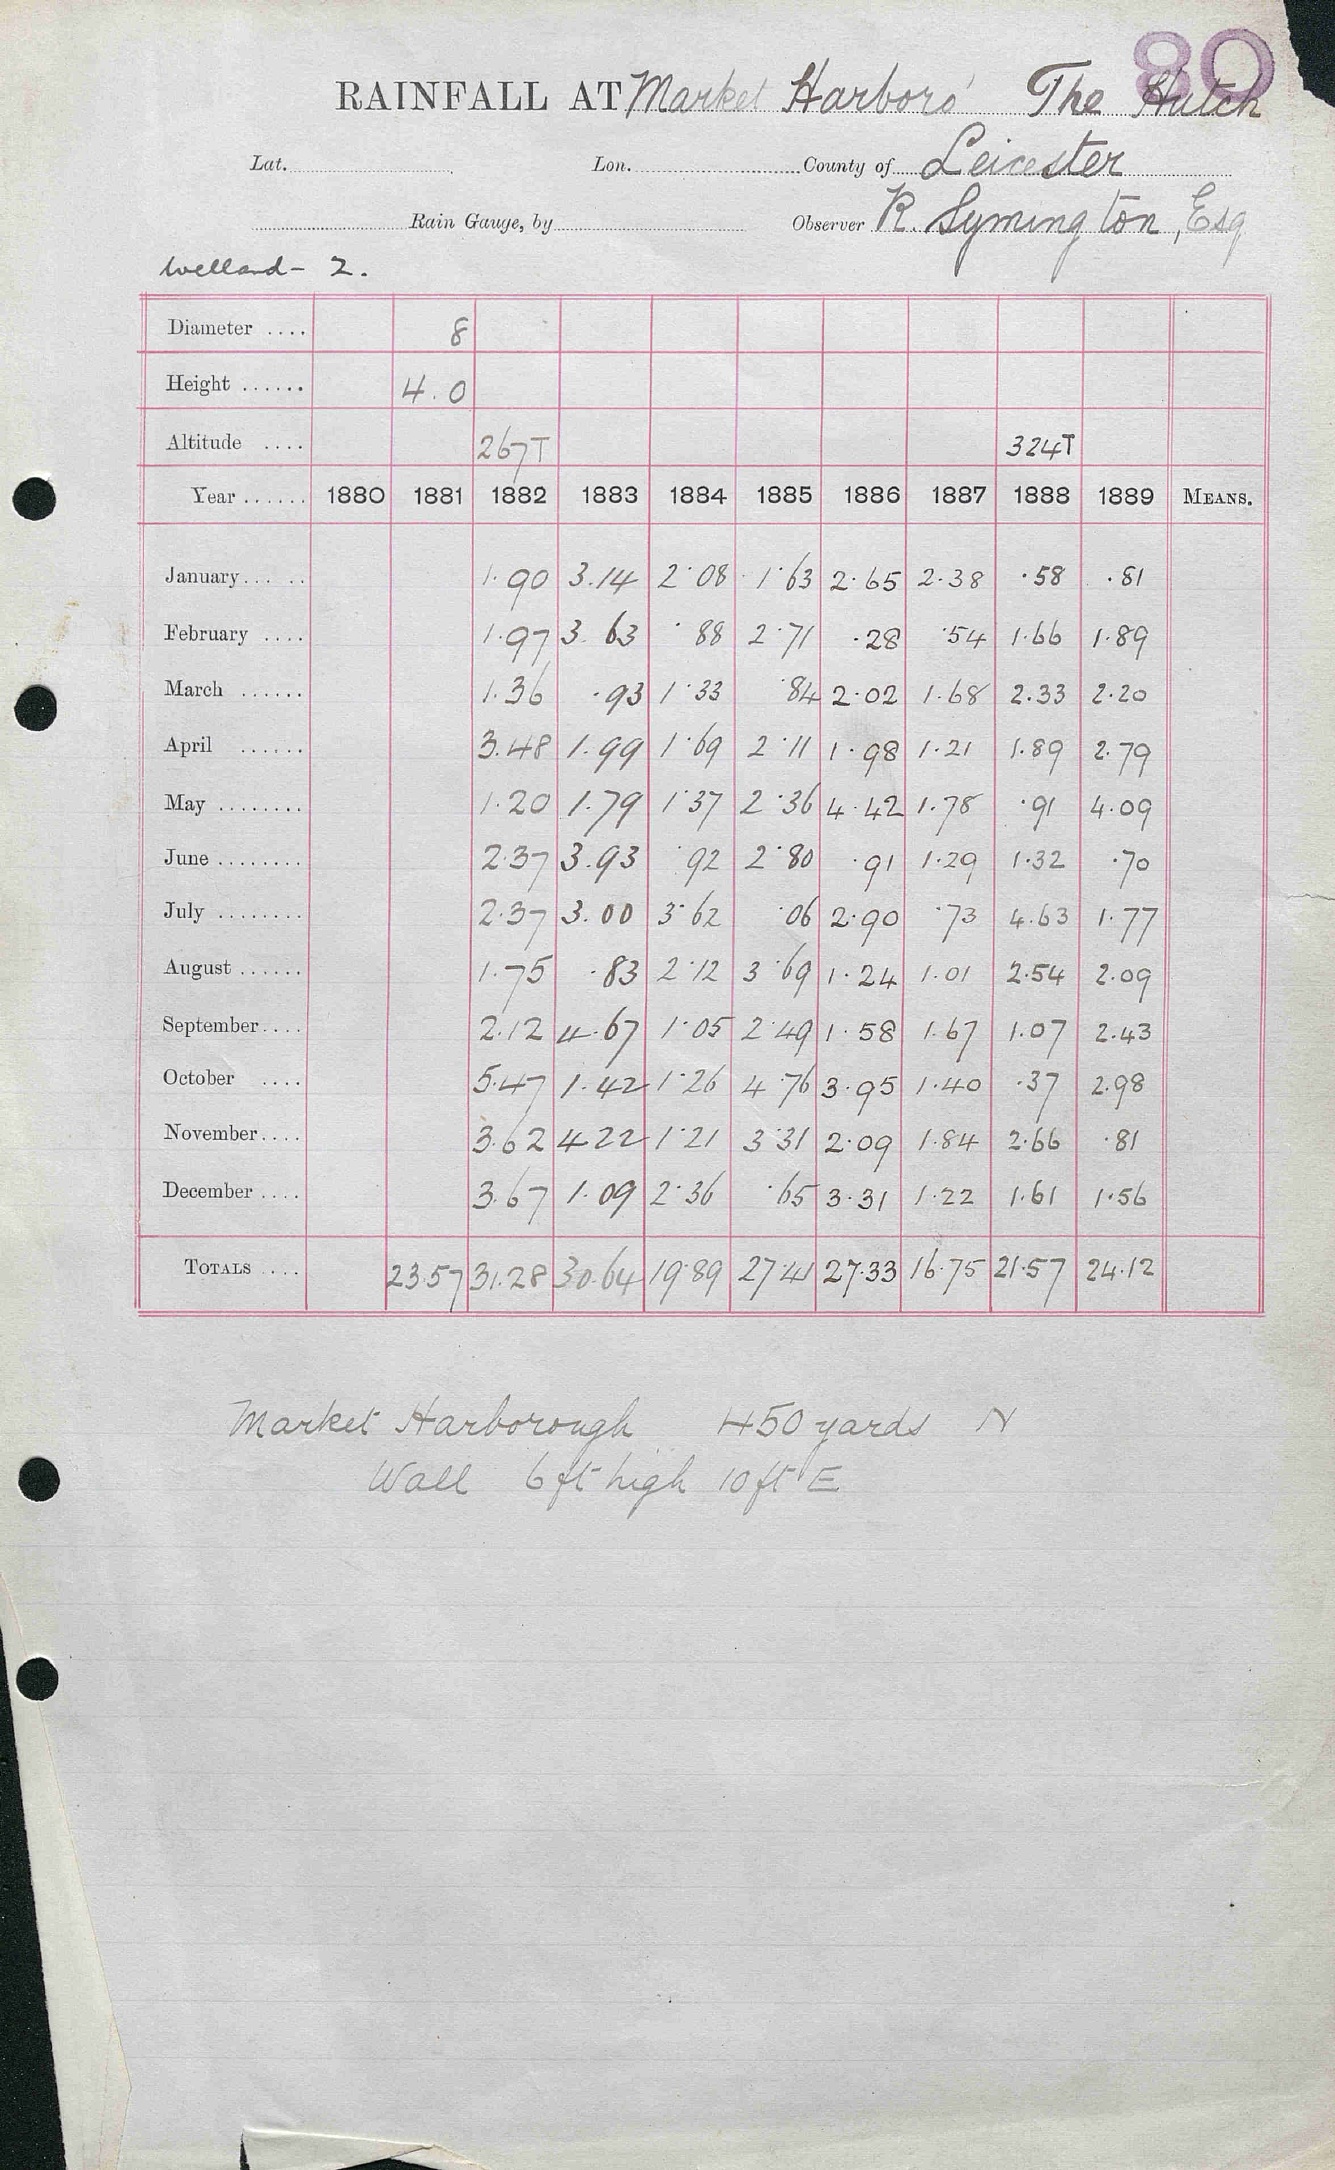 80
RAINFALL AT Market Harboro' The Hutch
Lat. Lon. County of Leicester
Rain Gauge, by Observer R. Symington, Esq
Welland - 2.
Diameter .... 8
Height ...... 4.0
Altitude .... 267T 324T
Year ...... 1880 1881 1882 1883 1884 1885 1886 1887 1888 1889 MEANS.
January... .. 1.90 3.14 2.08 1.63 2.65 2.38 .58 .81
February .... 1.97 3.63 .88 2.71 .28 .54 1.66 1.89
March ...... 1.36 .93 1.33 .84 2.02 1.68 2.33 2.20
April ...... 3.48 1.99 1.69 2.11 1.98 1.21 1.89 2.79
May ........ 1.20 1.79 1.37 2.36 4.42 1.78 .91 4.09
June ........ 2.37 3.93 .92 2.80 .91 1.29 1.32 .70
July ........ 2.37 3.00 3.62 .06 2.90 .73 4.63 1.77
August ...... 1.75 .83 2.12 3.69 1.24 1.01 2.54 2.09
September.... 2.12 4.67 1.05 2.49 1.58 1.67 1.07 2.43
October .... 5.47 1.42 1.26 4.76 3.95 1.40 .37 2.98
November.... 3.62 4.22 1.21 3.31 2.09 1.84 2.66 .81
December .... 3.67 1.09 2.36 .65 3.31 1.22 1.61 1.56
TOTALS .... 23.57 31.28 30.64 19.89 27.41 27.33 16.75 21.57 24.12
Market Harborough 450 yards N
Wall 6 ft high 10 ft E